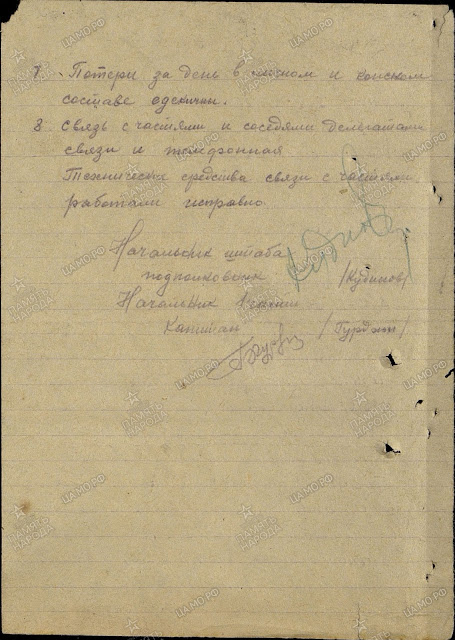 7. Потери за день в личном и конском
составе
8 Связь с частями и соседями делегатами
связи и телефонная
Технические средства связи с частями
работали исправно.
Начальник штаба
подполковник /Кудинов/
Начальник
Капитан /Гурдин/
ПАМЯТЬ НАРОДА
ЦАМО.РФ